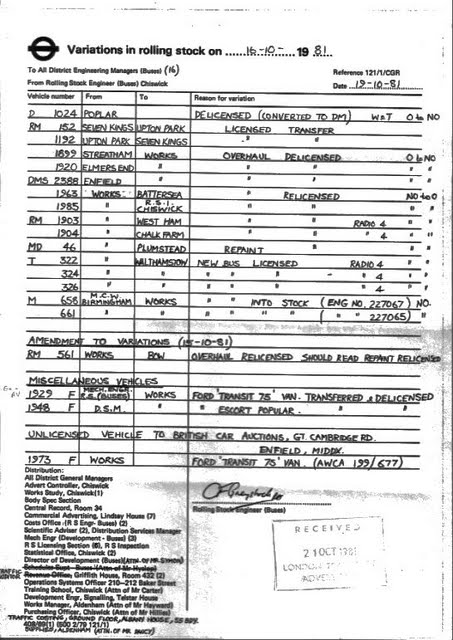 Variations in rolling stock on 16-10- 1981
To All District Engineering Managers (Buses) (16) Reference 121/1/CGR
From Rolling Stock Engineer (Buses) Chiswick Date 19-10-81
Vehicle number From To Reason for variation
D 1024 POPLAR DELICENSED (CONVERTED TO DM) W&T O to NO
RM 152 SEVEN KINGS UPTON PARK LICENSED TRANSFER
1192 UPTON PARK SEVEN KINGS " "
1899 STREATHAM WORKS OVERHAUL DELICENSED O to NO
1920 ELMERS END " " " " "
DMS 2388 ENFIELD " " " " "
1963 WORKS BATTERSEA " RELICENSED NO to O
1985 " R.S.I. CHISWICK " " " "
RM 1903 " WEST HAM " " RADIO 4 " "
1904 " CHALK FARM " " " 4 " "
MD 46 " PLUMSTEAD REPAINT " " "
T 322 " WALTHAMSTOW NEW BUS LICENSED RADIO 4 " "
324 " " " " " " 4 " "
326 " " " " " " 4 " "
M 656 M.C.W. BIRMINGHAM WORKS " " INTO STOCK (ENG NO. 227067) NO.
661 " " " " " ( " 227065) "
AMENDMENT TO VARIATIONS (15-10-81)
RM 561 WORKS BOW OVERHAUL RELICENSED SHOULD READ REPAINT RELICENSED
MISCELLANEOUS VEHICLES
1929 F MECH. ENGR. R.S. (BUSES) WORKS FORD 'TRANSIT 75' VAN. TRANSFERRED & DELICENSED
1948 F D.S.M. " " ESCORT POPULAR. " "
UNLICENSED VEHICLE TO BRITISH CAR AUCTIONS, GT. CAMBRIDGE RD.
ENFIELD, MIDDX.
1973 F WORKS FORD 'TRANSIT 75' VAN. (AWCA 199/677)
Distribution:
All District General Managers
Advert Controller, Chiswick
Works Study, Chiswick(1)
Body Spec Section
Central Record, Room 34
Commercial Advertising, Lindsay House (7)
Costs Office (R S Engr- Buses) (2)
Scientific Adviser (2), Distribution Services Manager
Mech Engr (Development - Buses) (3)
R S Licensing Section (6), R S Inspection
Statistical Office, Chiswick (2)
Director of Development (Buses) (ATTN OF MR. SIMON)
Schedules Supt - Buses (Attn of Mr Hyslop)
Revenue Office, Griffith House, Room 432 (2)
Operations Systems Officer 210-212 Baker Street
Training School, Chiswick (Attn of Mr Carter)
Development Engr, Signalling, Telstar House
Works Manager, Aldenham (Attn of Mr Hayward)
Purchasing Officer, Chiswick (Attn of Mr Hillier)
TRAFFIC COSTING, GROUND FLOOR, ALBANY HOUSE, 55 BDY.
Rolling Stock Engineer (Buses)
RECEIVED
21 OCT 1981
LONDON